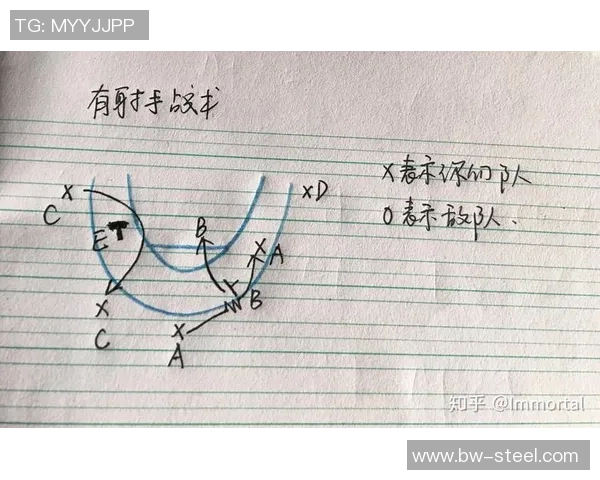 TG: MYYJJPP
有射手战术
X表示你们队
O表示敌队.
X
C
E
B
X
A
XD
X
C
B
X
A
知乎 @Immortal
www.bw-steel.com